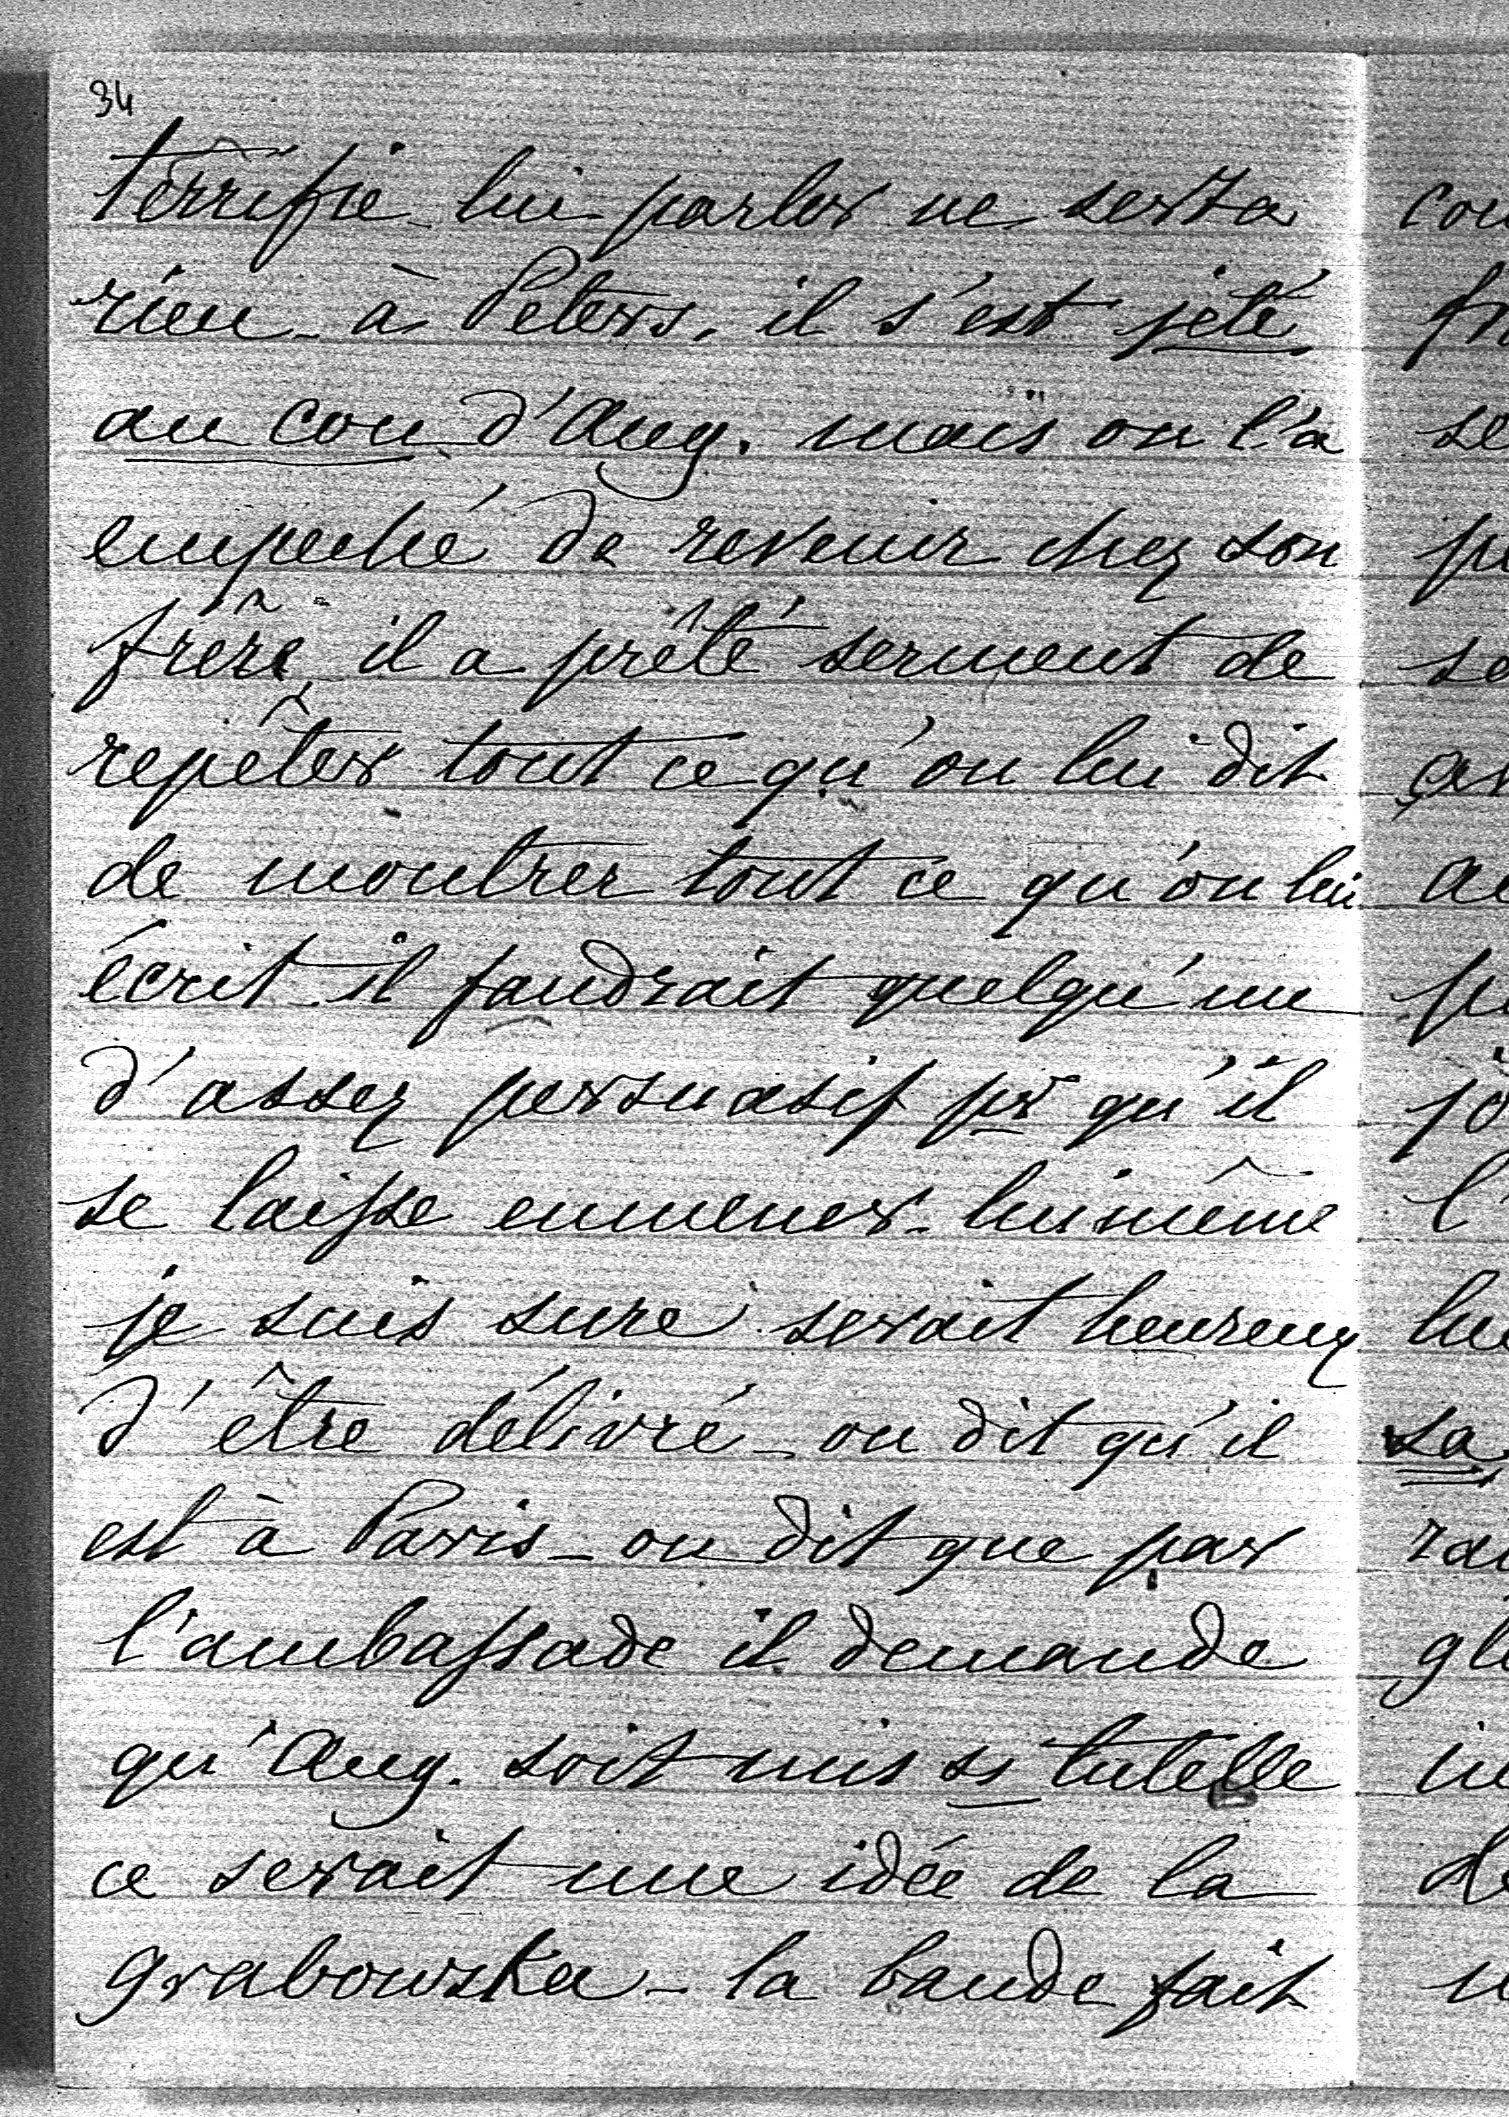 34
terrifié lui parler ne sert à
rien - à Peters, il s'est jeté
au cou d'Aug. mais on l'a
empeché de revenir chez son
frère il a prêté serment de
repêter tout ce qu'on lui dit
de montrer tout ce qu'on lui
écrit - il faudrait quelqu'un
d'assez persuasif pr qu'il
se laisse emmener - lui même
je suis sure serait heureux
d'être délivré - on dit qu'il
est à Paris - on dit que par
l'ambassade il demande
qu'Aug. soit mis ss tutelle
ce serait une idée de la
grabowska - la bande fait